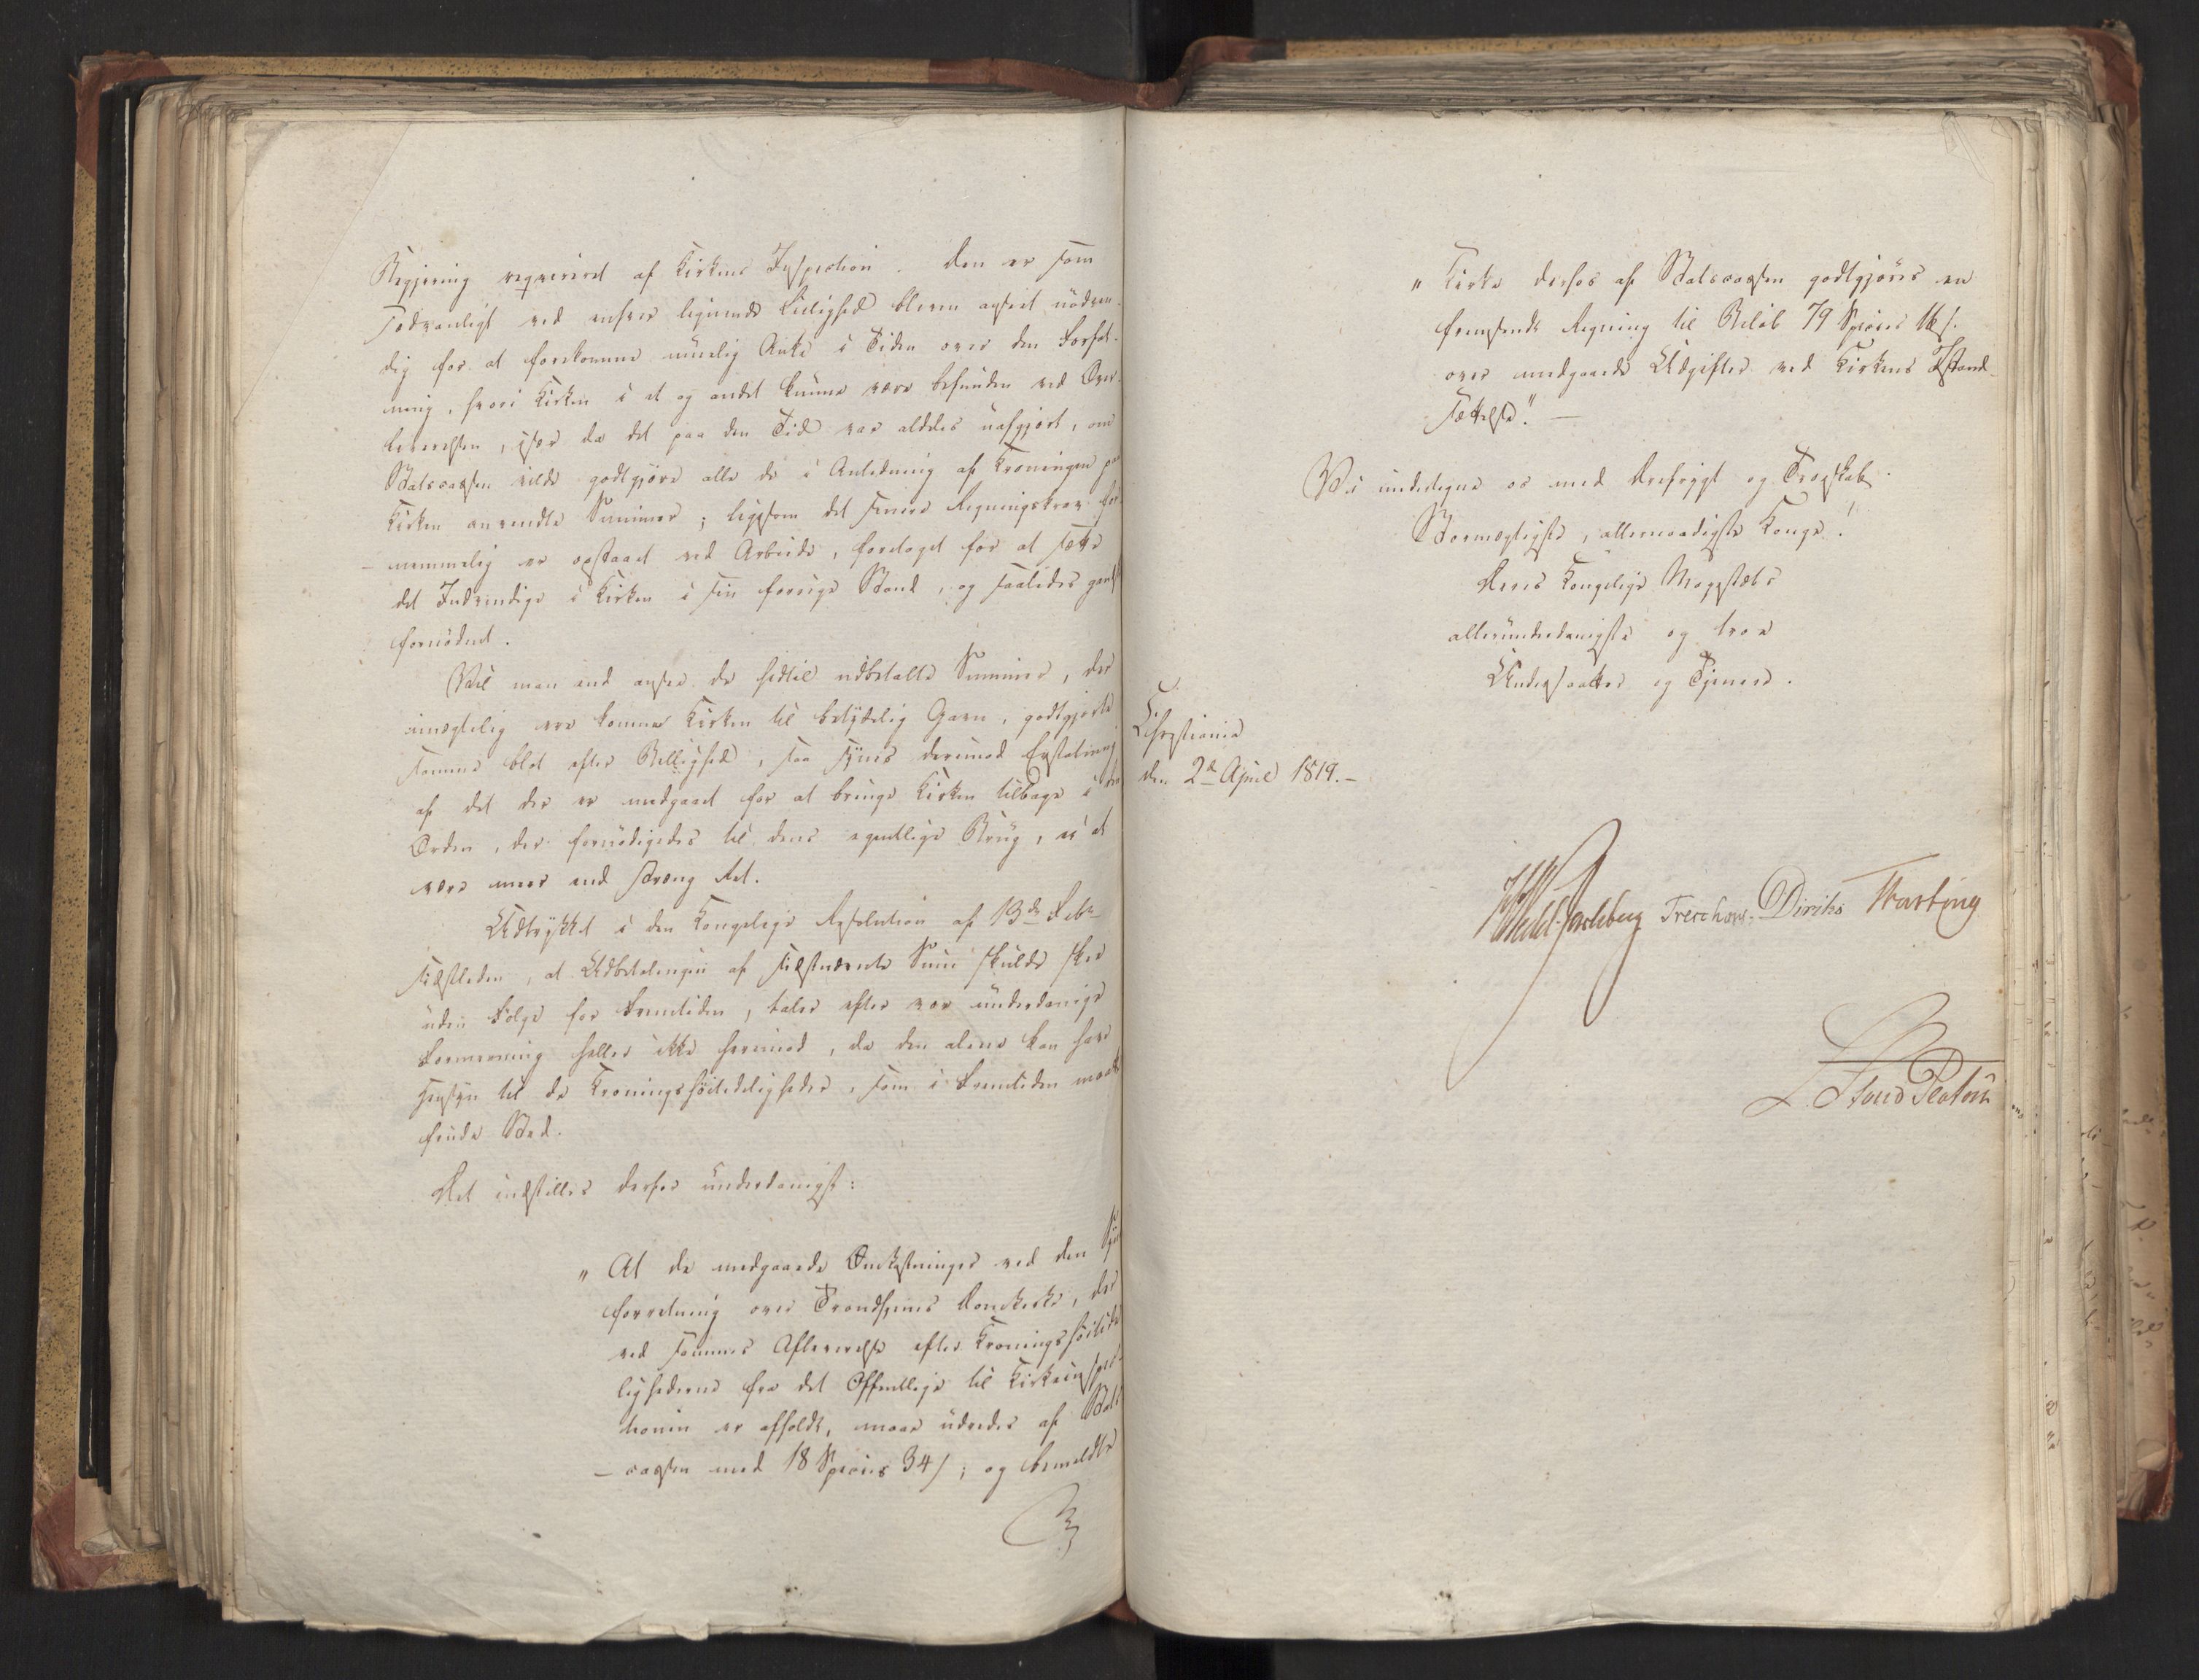 Regjering reqvireret af Kirkens Inspection. Den er som
sædvanligt ved enhver lignende Leilighed bleven anseet nödven-
dig for at forekomme muelig Anke i Tiden over den Forfat-
ning, hvori Kirken i et og andet kunne være befunden ved Over-
leverelsen, især da det paa den Tid var aldeles uafgjort, om
Statscassen vilde godtgjöre alle de i Anledning af Kroningen paa
Kirken anvendte Summer; ligesom det senere Regningskrav for-
- nemmelig er opstaaet ved Arbeide, foretaget for at sætte
det Indvendige i Kirken i sin forrige Stand, og saaledes gandske
fornödent.
Vil man end ansee de hidtil udbetalte Summer, der
unægtelig ere komne Kirken til betydelig Gavn, godtgjorte
samme blot efter Billighed, saa synes derimod Erstatning
af det der er medgaaet for at bringe Kirken tilbage i den
Orden, der fornödigedes til dens egentlige Brug, ei at
være meer end streng Ret.
Udtrykket i den Kongelige Resolution af 13de Febr
sidstleden, at Udbetalingen af sidstnævnte Sum skulde skee
uden Fölge for Fremtiden, taler efter vor underdanige
Formening heller ikke herimod, da den alene kan have
Hensyn til de Kroningshöitideligheder, som i Fremtiden maatte
finde Sted.
Det indstilles derfor underdanigst:
" At de medgaaede Omkostninger ved den Syns
forretning over Trondhjems Domkirke, der
ved sammes Aflevering efter Kroningshöitide
lighederne fra det Offentlige til Kirkeinspec-
tionen er afholdt, maae udredes af Stats
- cassen med 18 Species 34 s; og bemeldte
" Kirke derhos af Statscassen godtgjöres en
fremsendt Regning til Belöb 79 Species 16 s.
over medgaaede Udgifter ved Kirkens Istand-
sættelse." -
Vi undertegne os med Ærefrygt og Troskab.
Stormægtigste, allernaadigste Konge!
Deres Kongelige Majestæts
allerunderdanigste og troe
Undersaatter og Tjenere.
Christiania
den 2d April 1819. -
Wedel-Jarlsberg Treschow. Diriks Krafting
L. Stoud Platou